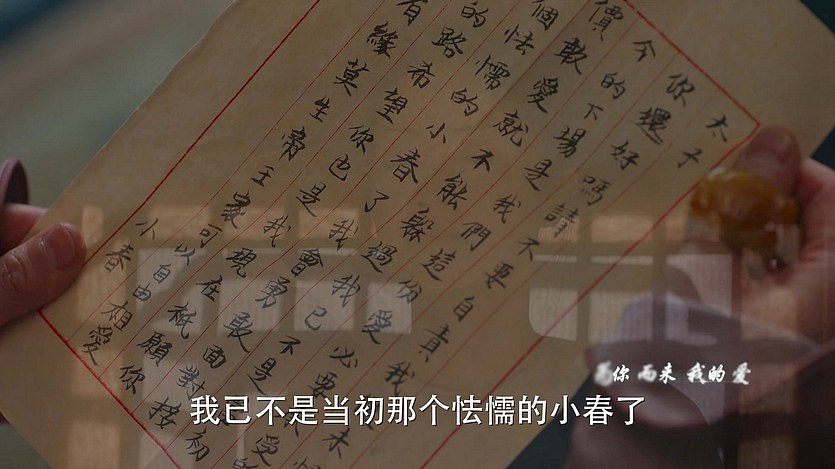 太子
你還好嗎請不要自責我
今的下場是我們這份愛必要
價敢愛就不能躲過我已不是
個怯懦的小春了我會勇敢面對
的路希望你也是我現在祇願
有緣莫生帝王家可以自由相愛
小春
你而来 我的爱
我已不是当初那个怯懦的小春了